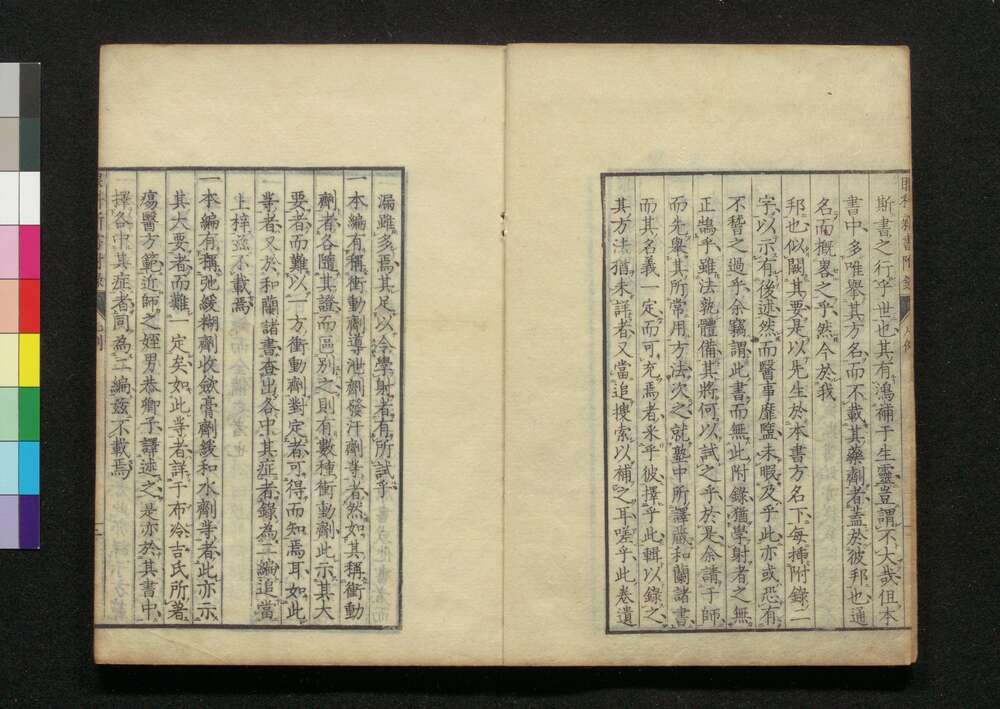 斯書之行乎世也其有鴻補于生靈豈謂不大哉但本
書中多唯舉其方名而不載其藥劑者蓋於彼邦也通
名而概畧之乎然今於我
邦也似闕其要是以先生於本書方名下每揷附錄二
字以示有後述然而醫事靡盬未暇及乎此亦或恐有
不嗇之過乎余竊謂此書而無此附錄猶學射者之無
正鵠乎雖法孰體備其將何以試之乎於是余請于師
而先舉其所常用方法次之就塾中所譯藏和蘭諸書
而其名義一定而可充焉者采乎彼擇乎此輯以錄之
其方法猶未詳者又當追搜索以補之耳嗟乎此卷遺
漏雖多焉其足以令學射者有所試乎
一本編有稱衝動劑導泄劑發汗劑等者然如其稱衝動
劑者各隨其證而區別之則有數種衝動劑此示其大
要者而難以一方衝動劑對定者可得而知焉耳如此
等者又於和蘭諸書査出各中其症者錄為二編追當
上梓玆不載焉
一本編有稱弛緩糊劑收斂膏劑緩和水劑等者此亦示
其大要者而難一定矣如此等者詳于布冷吉氏所著
瘍醫方範近師之姪男恭卿子譯述之是亦於其書中
擇各中其症者同為二編玆不載焉
眼科新書附錄
凡例